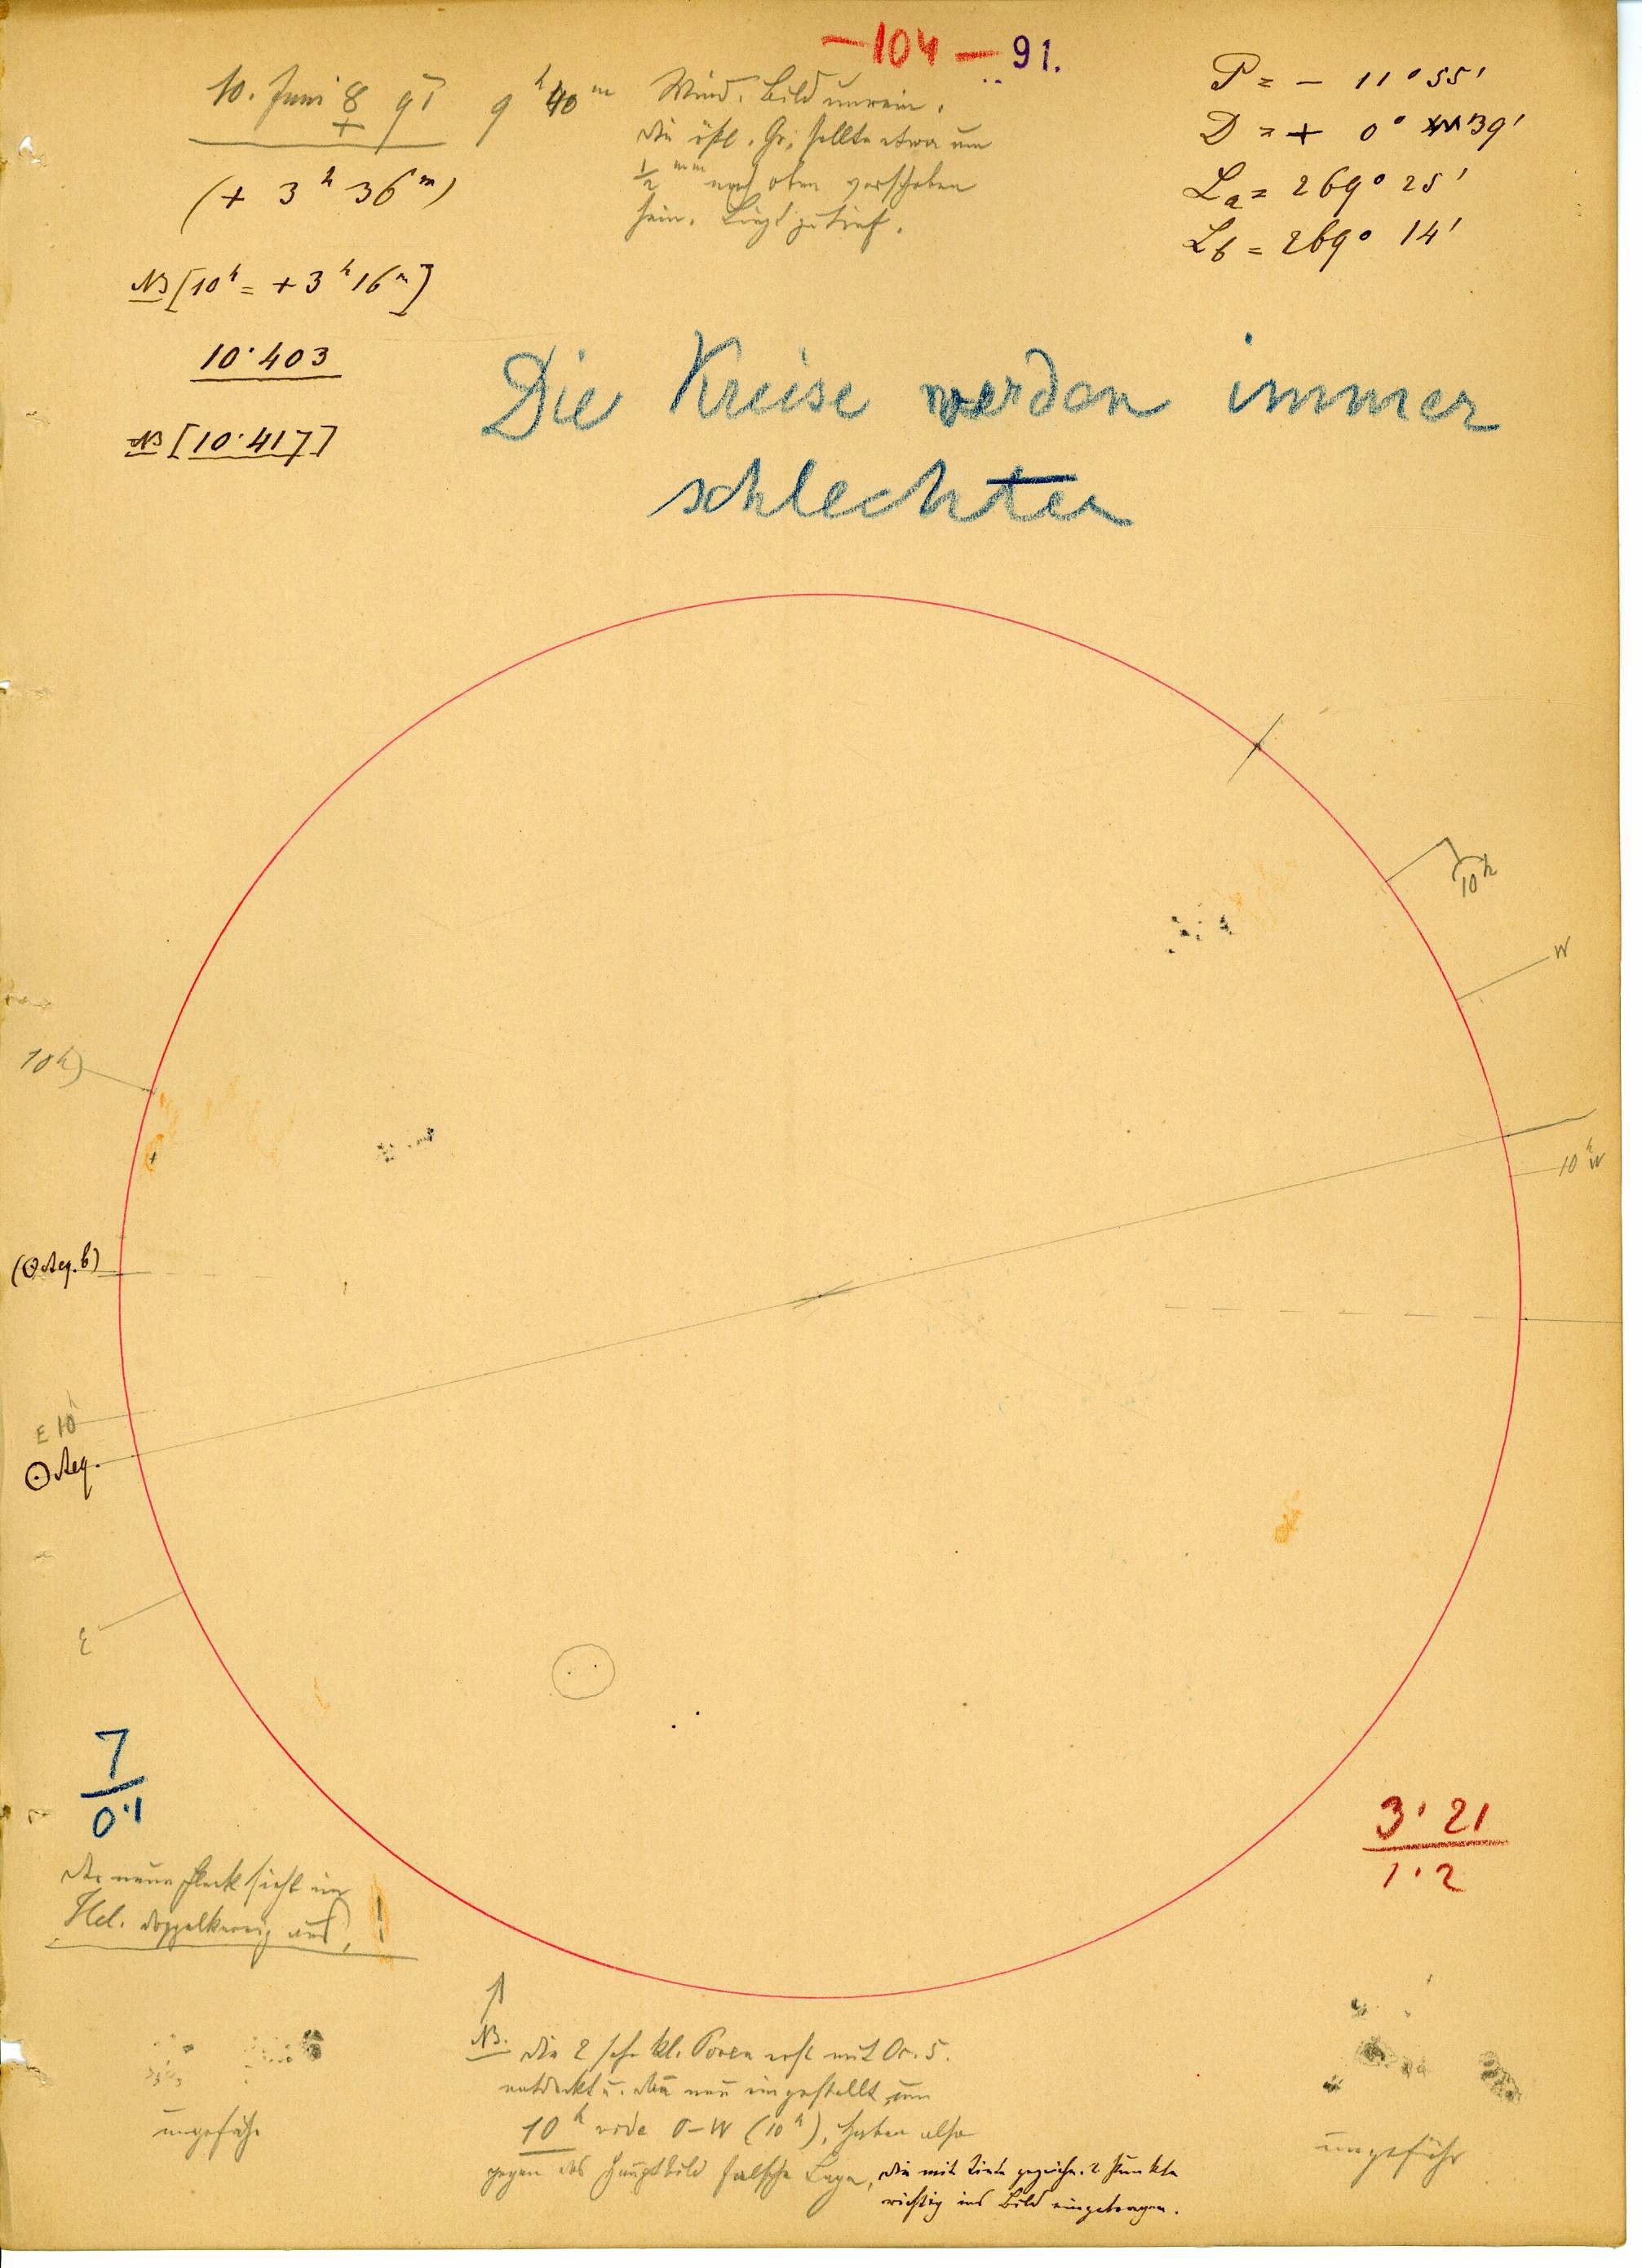 —104— 91.
10. Juni ☿ 91 9ʰ40ᵐ
(+ 3ʰ 36ᵐ)
NB [10ʰ = + 3ʰ 16ᵐ]
10·403
NB [10·417]
Wind. Bild unrein.
Die östl. Gr. sollte etwa um
½ mm nach oben verschoben
sein. Liegt zu tief.
P = − 11° 55'
D = + 0° 39'
La = 269° 25'
Lb = 269° 14'
Die Kreise werden immer
schlechter
10ʰ
W
10ʰ)
10ʰ W
(☉ Aeq. b)
E 10ʰ
☉ Aeq.
E
7
0·1
3·21
1·2
Der neue Fleck sieht im
Hel. doppelkernig aus, !
ungefähr
NB. Die 2 sehr kl. Poren erst mit Oc. 5.
entdeckt u. dann neu eingestellt um
10ʰ O–W (10ʰ), haben also
gegen das Hauptbild falsche Lage, die mit Tinte gezeichn. 2 Punkte
richtig ins Bild eingetragen.
ungefähr